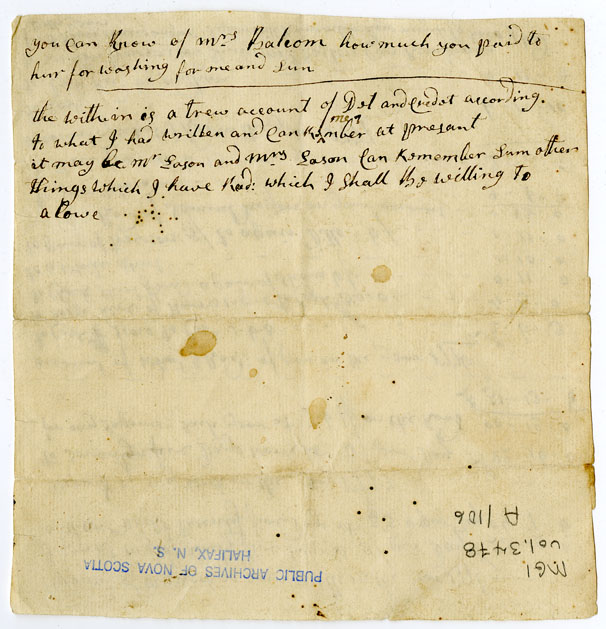 you can Know of Mrs Balcom how much you paid to
hur for washing for me and Sun
the within is a trew account of Det and Credet according
to what I had written and Can Remember at presant
it may be Mr Sason and Mrs Sason Can Remember Sum other
things which I have had: which I shall be willing to
alowe
PUBLIC ARCHIVES OF NOVA SCOTIA
HALIFAX, N. S.
MG1
Vol. 3478
A/106